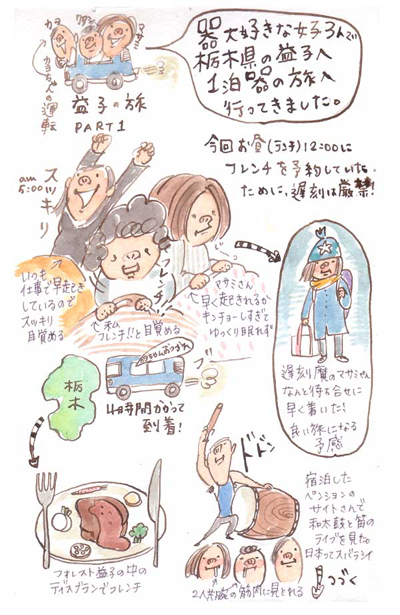 器大好きな女子3人で
栃木県の益子へ
1泊器の旅へ
行ってきました。
マサミ
タン
カヨ
カヨちゃんの運転
益子の旅
PART1
今回お昼(ランチ)12:00に
フレンチを予約していた
ために、遅刻は厳禁!
am
5:00
スッキリ
フレンチ!
いつも
仕事で早起き
しているので
スッキリ
目覚める
私
フレンチ!!と目覚める
マサミさん
早く起きれるか
キンチョーしすぎて
ゆっくり眠れず
遅刻魔のマサミさん
なんと待ち合せに
早く着いた!
良い旅になる
予感
栃木
ちゃんおつかれ
4時間かかって
到着!
ドドン
フォレスト益子の中の
ディスプランでフレンチ
宿泊した
ペンションの
サイトさんで
和太鼓と笛の
ライブを見た。
日本ってスバラシイ
2人の筋肉に見とれる
つづく